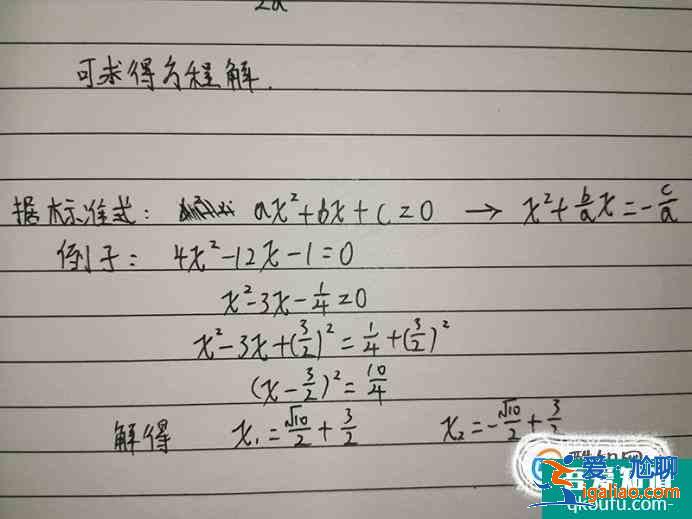 2a
可求得方程解.
据标准式: ax²+bx+c=0 → x²+b/a x=-c/a
例子: 4x²-12x-1=0
x²-3x-1/4=0
x²-3x+(3/2)²=1/4+(3/2)²
(x-3/2)²=10/4
解得 x₁=√10/2+3/2 x₂=-√10/2+3/2
爱尬聊
igaliao.com
qksufu.com